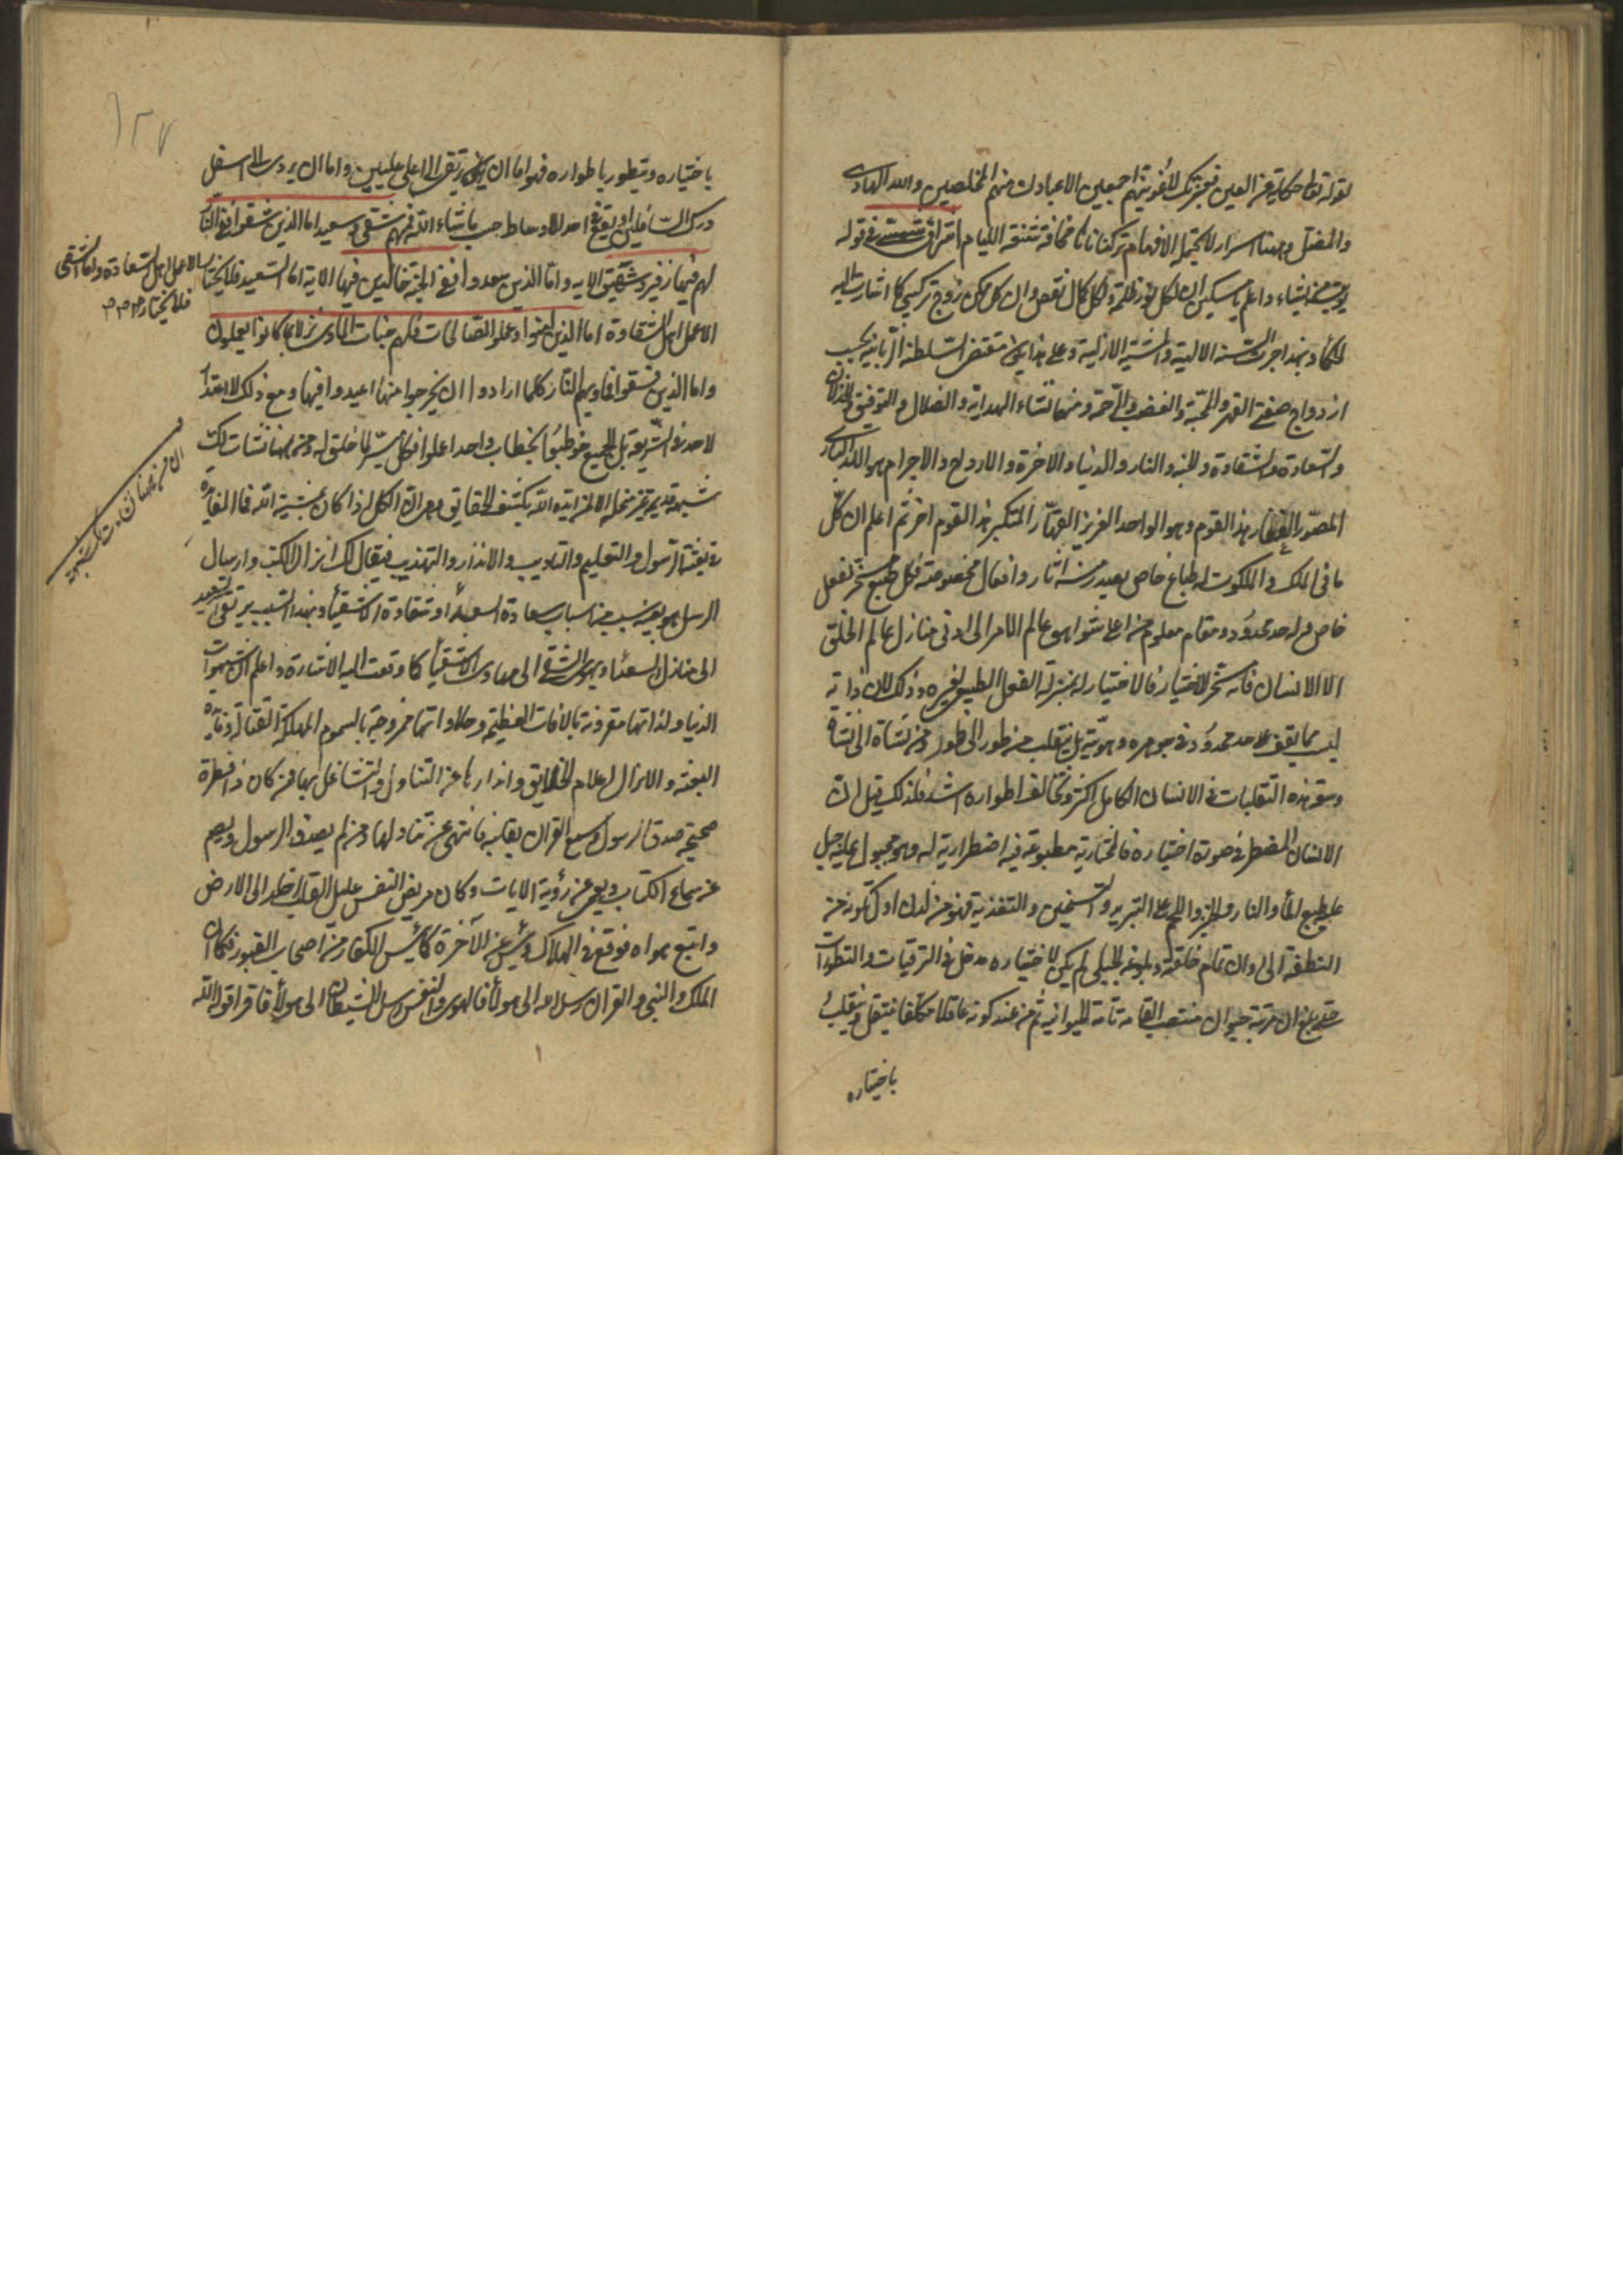 قوله تعالى حكاية عن اللعين فبعزتك لاغوينهم اجمعين الا عبادك منهم المخلصين والله الهادى
والمضل وههنا اسرار لا يحتمله الافهام تركناها مخافة
يؤتيه من يشاء واعلم يا مسكين ان لكل نور ظلمة ولكل كمال نقص وان كل ممكن زوج تركيبى كما اشارت اليه
الحكماء بهذا جرت السنة الالهية والمشية الازلية وعلى هذا يكون مقتضى السلطنة الربانية بحسب
ازدواج صفتى القهر والمحبة والغضب والرحمة ومنهما نشاء الهداية والضلال والتوفيق والخذلان
والسعادة والشقاوة والجنة والنار والدنيا والاخرة والارواح والاجرام هو الله البارى
المصور الغفار بهذا القوم وهو الواحد العزيز القهار المتكبر بهذا القوم اخر ثم اعلم ان كل
ما فى الملك والملكوت له طباع خاص يصدر منه اثار وافعال مخصوصة فكل طبع مسخر لفعل
خاص وله حد محدود ومقام معلوم من اعلى شواهق عالم الامر الى ادنى منازل عالم الخلق
الا الانسان فانه مسخر للاختيار فالاختيار له بمنزلة الفعل الطبيعى لغيره وذلك لان ذاته
ليست مما يقف على حد محدود فى جوهره وهويته بل يتقلب من طور الى طور ومن نشاة الى نشاة
وسعة هذه التقلبات فى الانسان الكامل اكثر وتخالف اطواره اشد فلذلك قيل ان
الانسان المضطر فى صورة اختياره فالمختارية مطبوعة فيه اضطرارية له وهو مجبول عليه جبل
عليه طبع الماء والنار والخبز واللحم على التبريد والتسخين والتغذية فهو من لدن اول تكونه من
النطفة الى اوان تمام خلقته وبلوغه الجبلى لم يكن لاختياره مدخل فى الترقيات والتطورات
حتى بلغ الى مرتبة حيوان منتصب القامة تامة الحيوانية ثم من عند كونه عاقلا مكلفا ينتقل ويتقلب
باختياره
١٢٧
باختياره ويتطور باطواره فهو اما ان يرتقى الى اعلى عليين واما ان يردى الى اسفل
درك السافلين او يقع فى احد الاوساط حسب ما شاء الله فمنهم شقى وسعيد اما الذين شقوا ففى النار
لهم فيها زفير وشهيق الاية واما الذين سعدوا ففى الجنة خالدين فيها الاية اما السعيد فلا يختار
الا عمل اهل السعادة واما الشقى
فلا يختار
الا عمل اهل الشقاوة اما الذين امنوا وعملوا الصالحات فلهم جنات الماوى نزلا بما كانوا يعملون
واما الذين فسقوا فماويهم النار كلما ارادوا ان يخرجوا منها اعيدوا فيها ومع ذلك لا اعتذار
لاحد فى الشريعة بل الجميع خوطبوا بخطاب واحد اعملوا فكل ميسر لما خلق له ومن ههنا نشات لك
شبهة قديم من الله الا لمن ايده الله بكشف الحقايق وهى ان الكل اذا كان بمشية الله فما الفايدة
فى بعثة الرسول والتعليم والتاديب والانذار والتهذيب فيقال لك انزال الكتب وارسال
الرسل هو بعينه سبب من اسباب سعادة السعداء وشقاوة الاشقياء وبهذا السبب يرتقى السعيد
الى منازل السعداء ويهوى الشقى الى مهاوى الاشقياء كما وقعت اليه الاشارة واعلم ان شهوات
الدنيا ولذاتها مقرونة بالافات العظيمة وحلاواتها ممزوجة بالسموم المهلكة القتالة وفايدة
البعثة والانزال اعلام الخلايق وانذارها عن التناول والتشاغل بها فمن كان ذا فطرة
صحيحة صدق الرسول وسمع القران بقلبه فانتهى عن تناولها ومن لم يصدق الرسول ويصم
عن سماع الكتاب ويعمى عن رؤية الايات وكان مريض النفس عليل القلب اخلد الى الارض
واتبع هواه فوقع فى الهلاك ويئس عن الاخرة كما يئس الكفار من اصحاب القبور فكما ان
الملك والنبى والقران رسل الله الى هولاء فالهوى والنفس رسل الشيطان الى هولاء